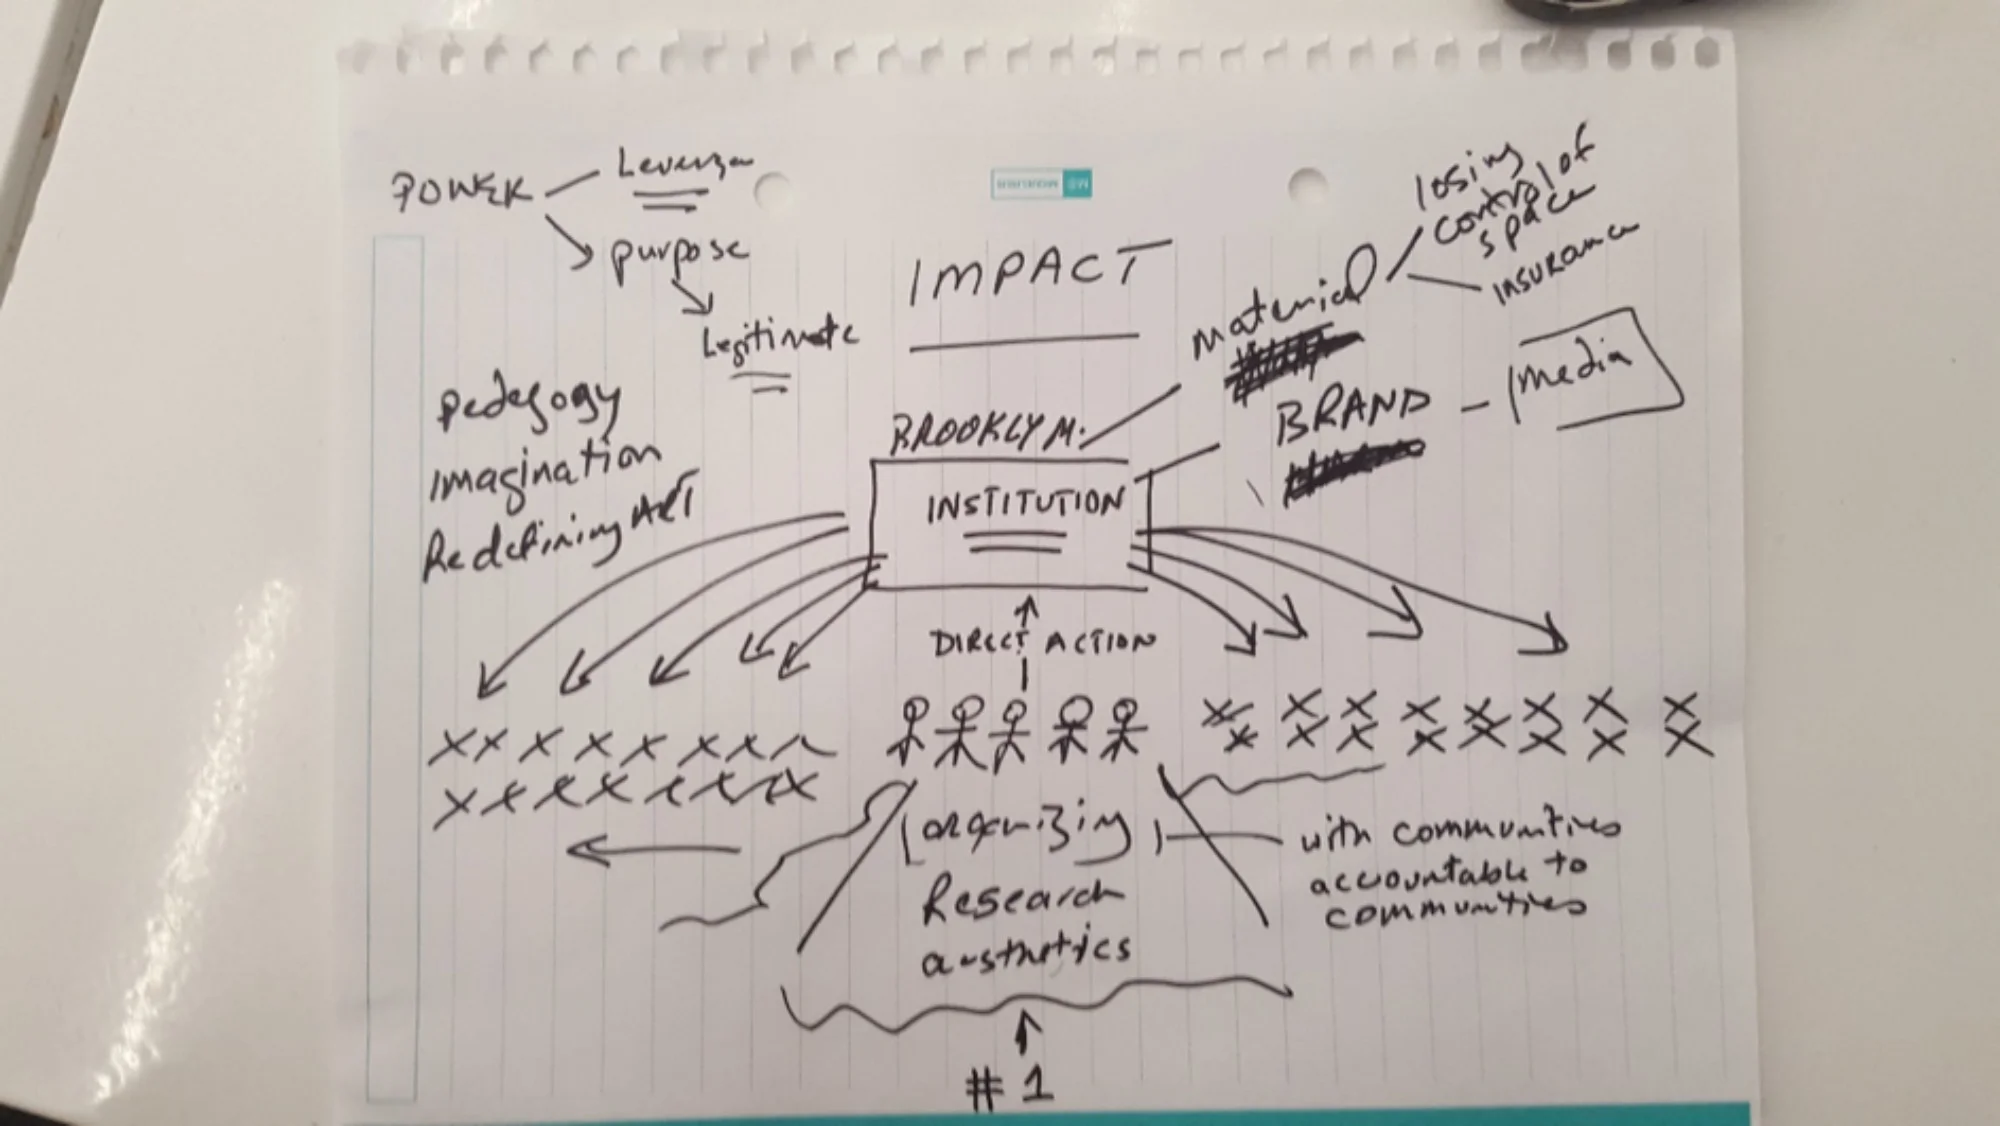 POWER
Leverage
purpose
Legitimate
IMPACT
losing
control of
space
insurance
material
BRAND
media
pedegogy
imagination
Redefining ART
BROOKLYN M.
INSTITUTION
DIRECT ACTION
organizing
Research
aesthetics
with communities
accountable to
communities
#1